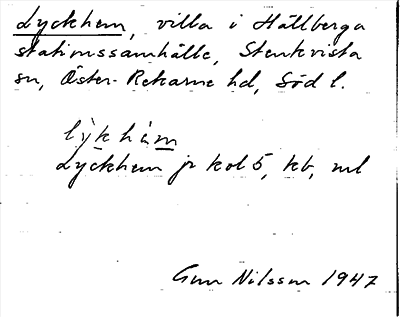 Lyckhem, villa i Hällberga
stationssamhälle, Stenkvista
sn, Öster-Rekarne hd, Söd l.
lỳkhäm
Lyckhem jr kol 5, kb, ml
Gun Nilsson 1947